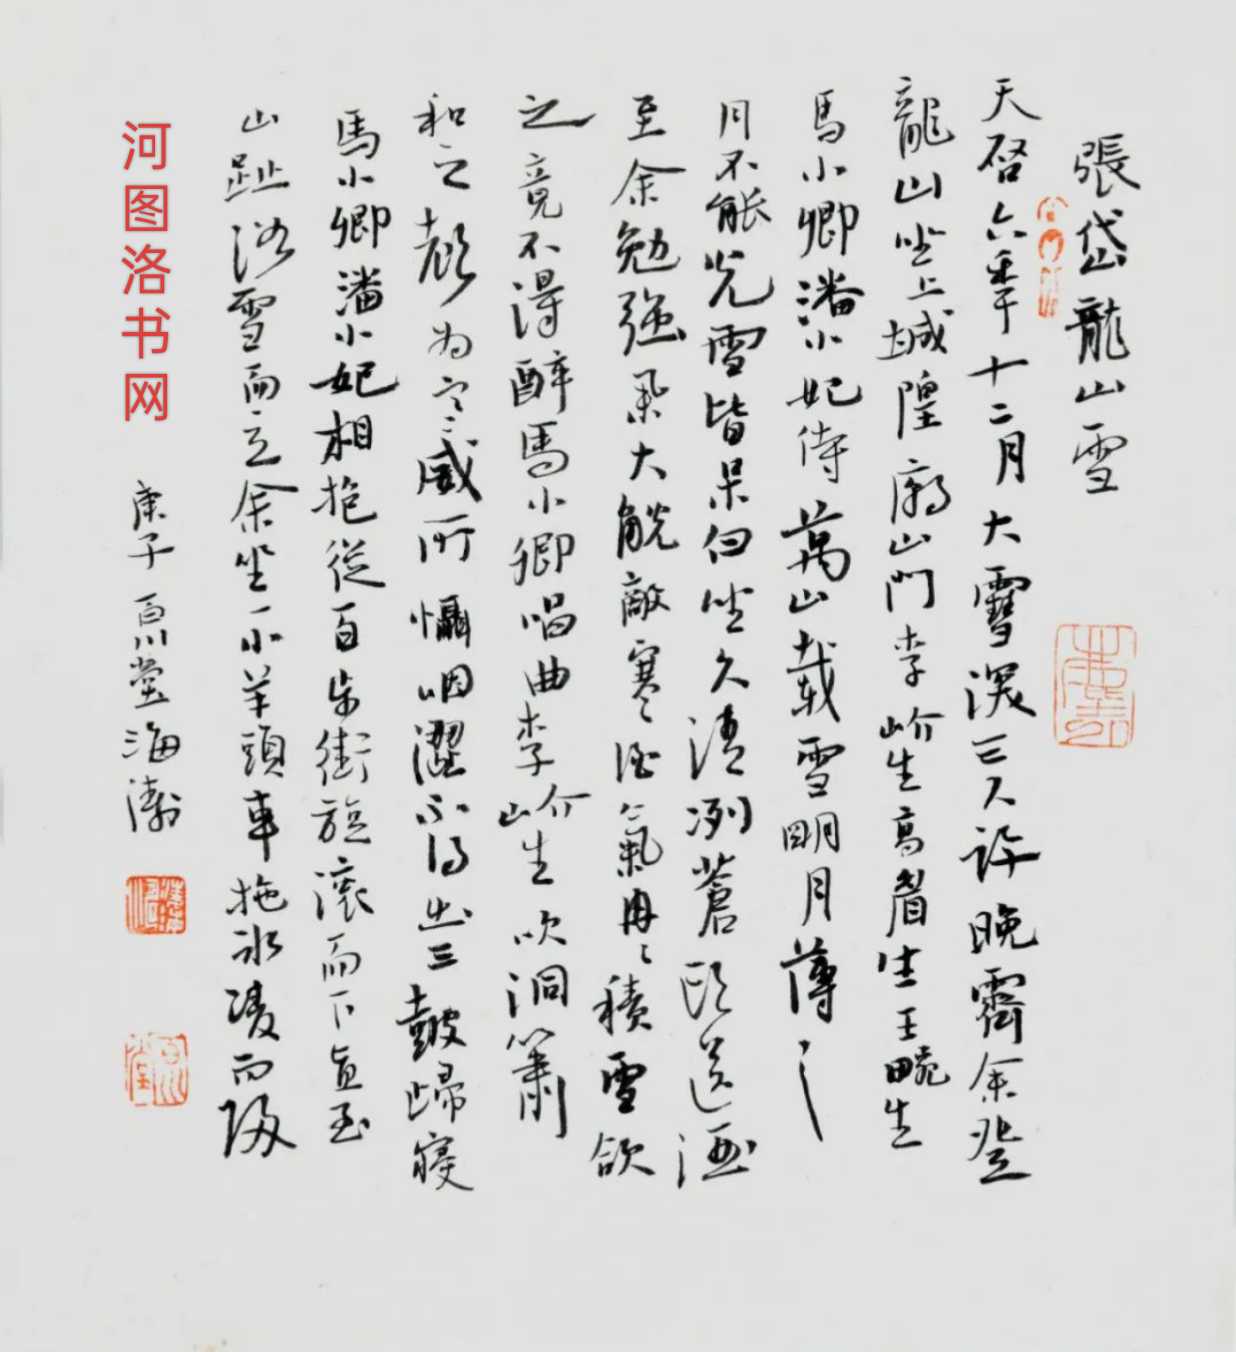 張岱龍山雪
天啓六年十二月大雪深三人許晚霽余登
龍山坐上城隍廟山門李岕生高眉生王畹生
馬小卿潘小妃侍萬山載雪明月薄之
月不能光雪皆呆白坐久清冽蒼頭送酒
至余勉強舉大觥敵寒寒酒氣冉冉積雪欱
之竟不得醉馬小卿唱曲李岕生吹洞簫
和之聲为寒威所懾咽澀不得出三鼓歸寢
馬小卿潘小妃相抱從百步街旋滚而下直至
山趾浴雪而立余坐一小羊頭車拖冰凌而歸
庚子 百川堂海濤
河图洛书网